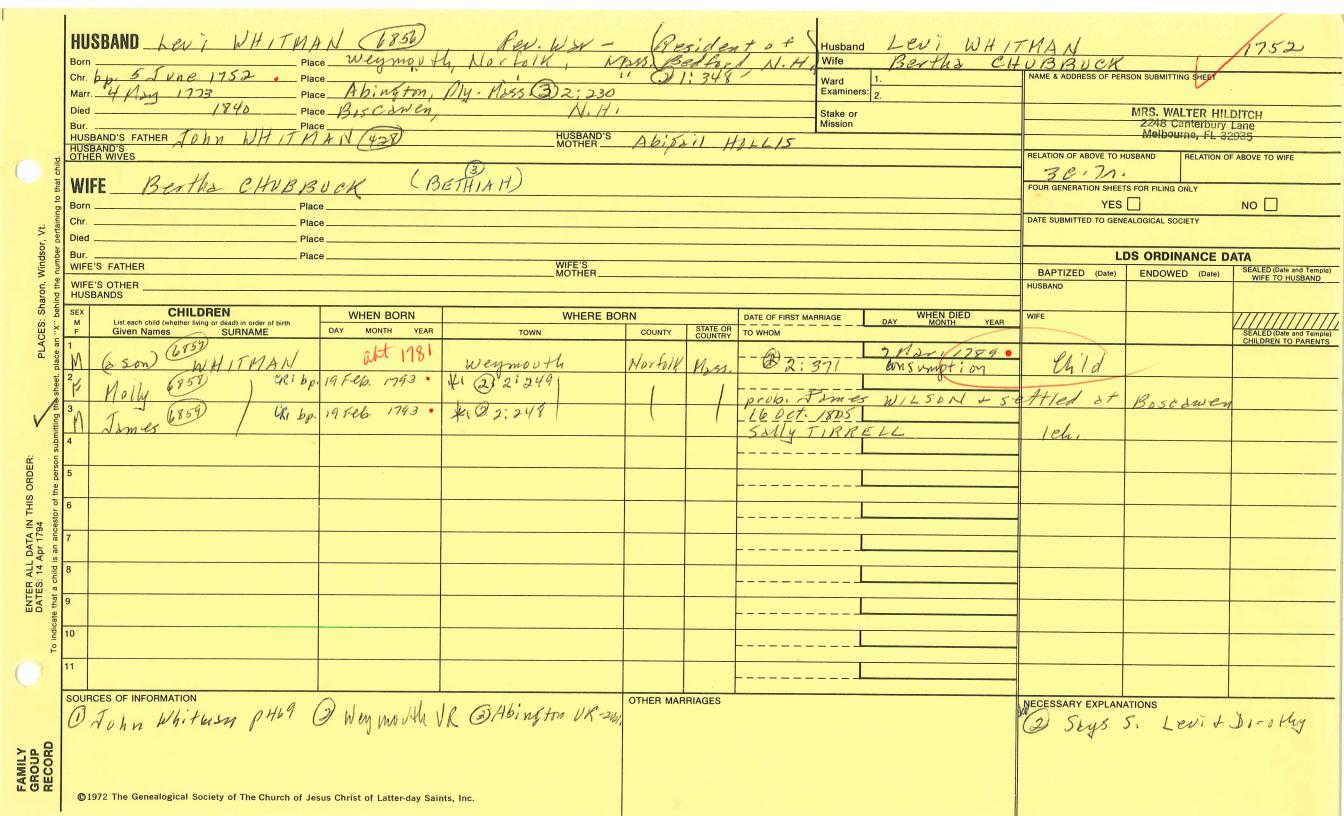 HUSBAND Levi WHITMAN (6856) Rev. War - (Resident of
Born Place Weymouth, Norfolk, Mass. Bedford, N.H.)
Chr. bp. 5 June 1752 Place " " (2) 1:348
Marr. 4 May 1773 Place Abington, Ply. Mass (3) 2:230
Died 1840 Place Boscawen, N.H.
Bur. Place
HUSBAND'S FATHER John WHITMAN (428) HUSBAND'S MOTHER Abigail HOLLIS
HUSBAND'S OTHER WIVES
WIFE Bertha CHUBBUCK (BETHIAH) (3)
Born Place
Chr. Place
Died Place
Bur. Place
WIFE'S FATHER WIFE'S MOTHER
WIFE'S OTHER HUSBANDS
Husband Levi WHITMAN 1752
Wife Bertha CHUBBUCK
Ward Examiners: 1.
2.
Stake or Mission
NAME & ADDRESS OF PERSON SUBMITTING SHEET
MRS. WALTER HILDITCH
2248 Canterbury Lane
Melbourne, FL 32935
RELATION OF ABOVE TO HUSBAND RELATION OF ABOVE TO WIFE
FOUR GENERATION SHEETS FOR FILING ONLY
YES NO
DATE SUBMITTED TO GENEALOGICAL SOCIETY
LDS ORDINANCE DATA
BAPTIZED (Date) ENDOWED (Date) SEALED (Date and Temple) WIFE TO HUSBAND
HUSBAND
WIFE
SEALED (Date and Temple) CHILDREN TO PARENTS
SEX M F
CHILDREN
List each child (whether living or dead) in order of birth
Given Names SURNAME
WHEN BORN
DAY MONTH YEAR
WHERE BORN
TOWN COUNTY STATE OR COUNTRY
DATE OF FIRST MARRIAGE
TO WHOM
WHEN DIED
DAY MONTH YEAR
1 M (a son) (6857) WHITMAN abt 1781 Weymouth Norfolk Mass. (2) 2:371 Mar. 1789 Consumption Child
2 F Molly (6858) bp. 19 Feb. 1793 (2) 2:249 prob. James WILSON + settled at Boscawen
3 M James (6859) bp. 19 Feb 1793 (2) 2:248 16 Oct. 1805
Sally TIRRELL 1ch.
4
5
6
7
8
9
10
11
SOURCES OF INFORMATION
(1) John Whitman p469 (2) Weymouth VR (3) Abington VR
OTHER MARRIAGES
NECESSARY EXPLANATIONS
(2) Says S. Levi + Dorothy
©1972 The Genealogical Society of The Church of Jesus Christ of Latter-day Saints, Inc.
FAMILY GROUP RECORD
ENTER ALL DATA IN THIS ORDER:
DATES: 14 Apr 1794
PLACES: Sharon, Windsor, Vt.
To indicate that a child is an ancestor of the person submitting the sheet, place an "X" behind the number pertaining to that child.